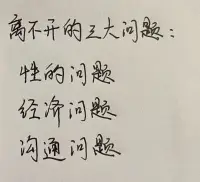 离不开的三大问题：
性的问题
经济问题
沟通问题